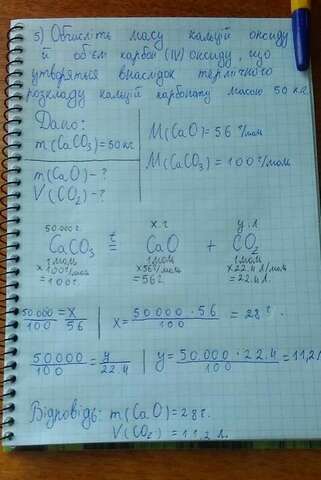 5) Обчисліть масу кальцій оксиду
й об'єм карбон (IV) оксиду, що
утворяться внаслідок термічного
розкладу кальцій карбонату масою 50 кг.
Дано:
m(CaCO₃)=50кг.
m(CaO)-?
V(CO₂)-?
M(CaO)=56г/моль
M(CaCO₃)=100г/моль
50.000г. x г. y л.
CaCO₃ t= CaO + CO₂
1моль 1моль 1моль
×100г/моль ×56г/моль ×22.4л/моль
=100г. =56г. =22.4л.
50.000/100 = x/56 | x= 50.000·56/100 = 28г.
50.000/100 = y/22.4 | y= 50.000·22.4/100 =11,2л
Відповідь: m(CaO)=28г.
V(CO₂)=11,2л.